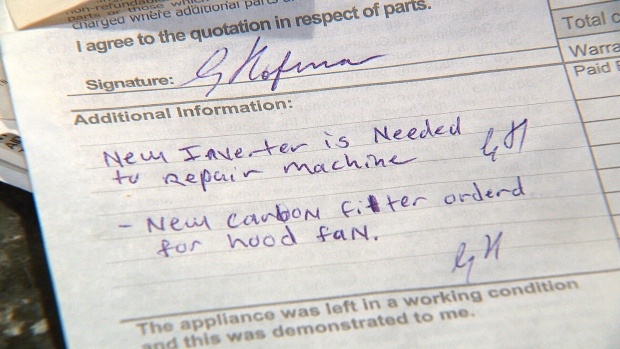 non-refundable
parts or those which
charged where additional parts
I agree to the quotation in respect of parts.
Signature: G Hofma
Total
Warra
Paid
Additional Information:
New Inverter is Needed
to repair machine
GH
- New carbon filter orderd
for hood fan.
GH
The appliance was left in a working condition
and this was demonstrated to me.